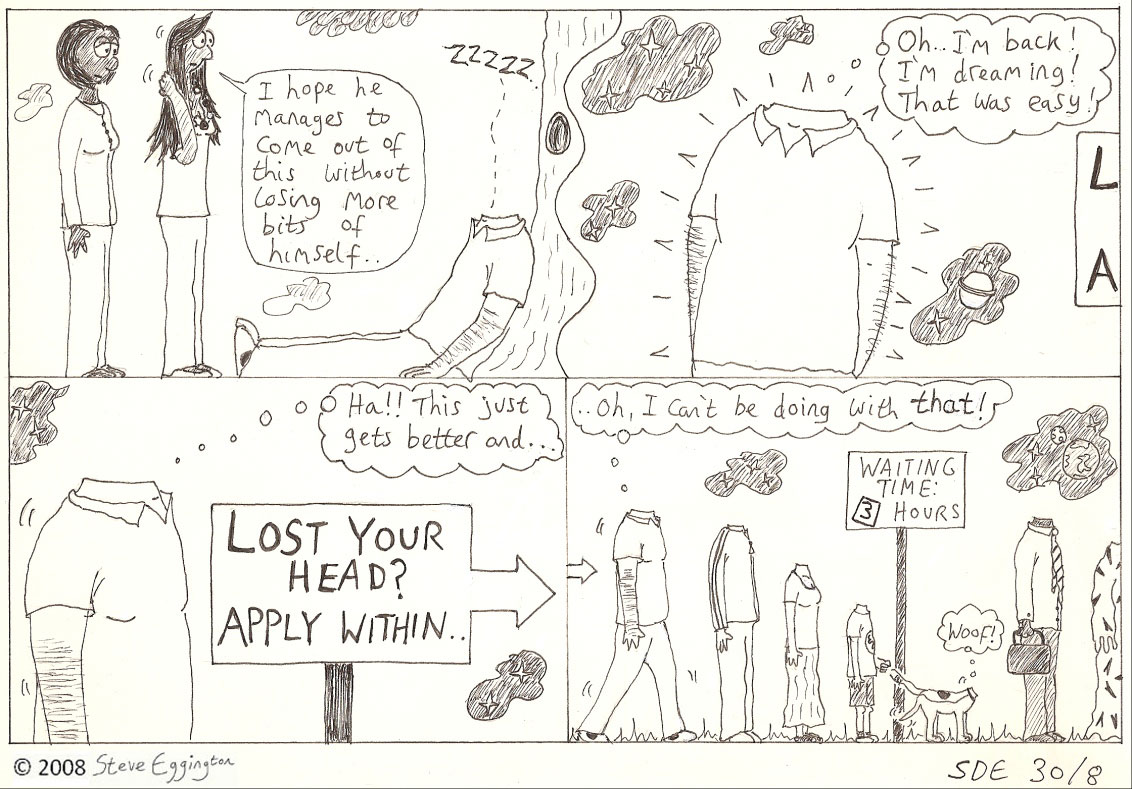 I hope he
manages to
come out of
this without
losing more
bits of
himself..
ZZZZZ
Oh.. I'm back!
I'm dreaming!
That was easy!
L
A
Ha!! This just
gets better and...
LOST YOUR
HEAD?
APPLY WITHIN..
..Oh, I can't be doing with that!
WAITING
TIME:
3 HOURS
WOOF!
© 2008 Steve Eggington
SDE 30/8